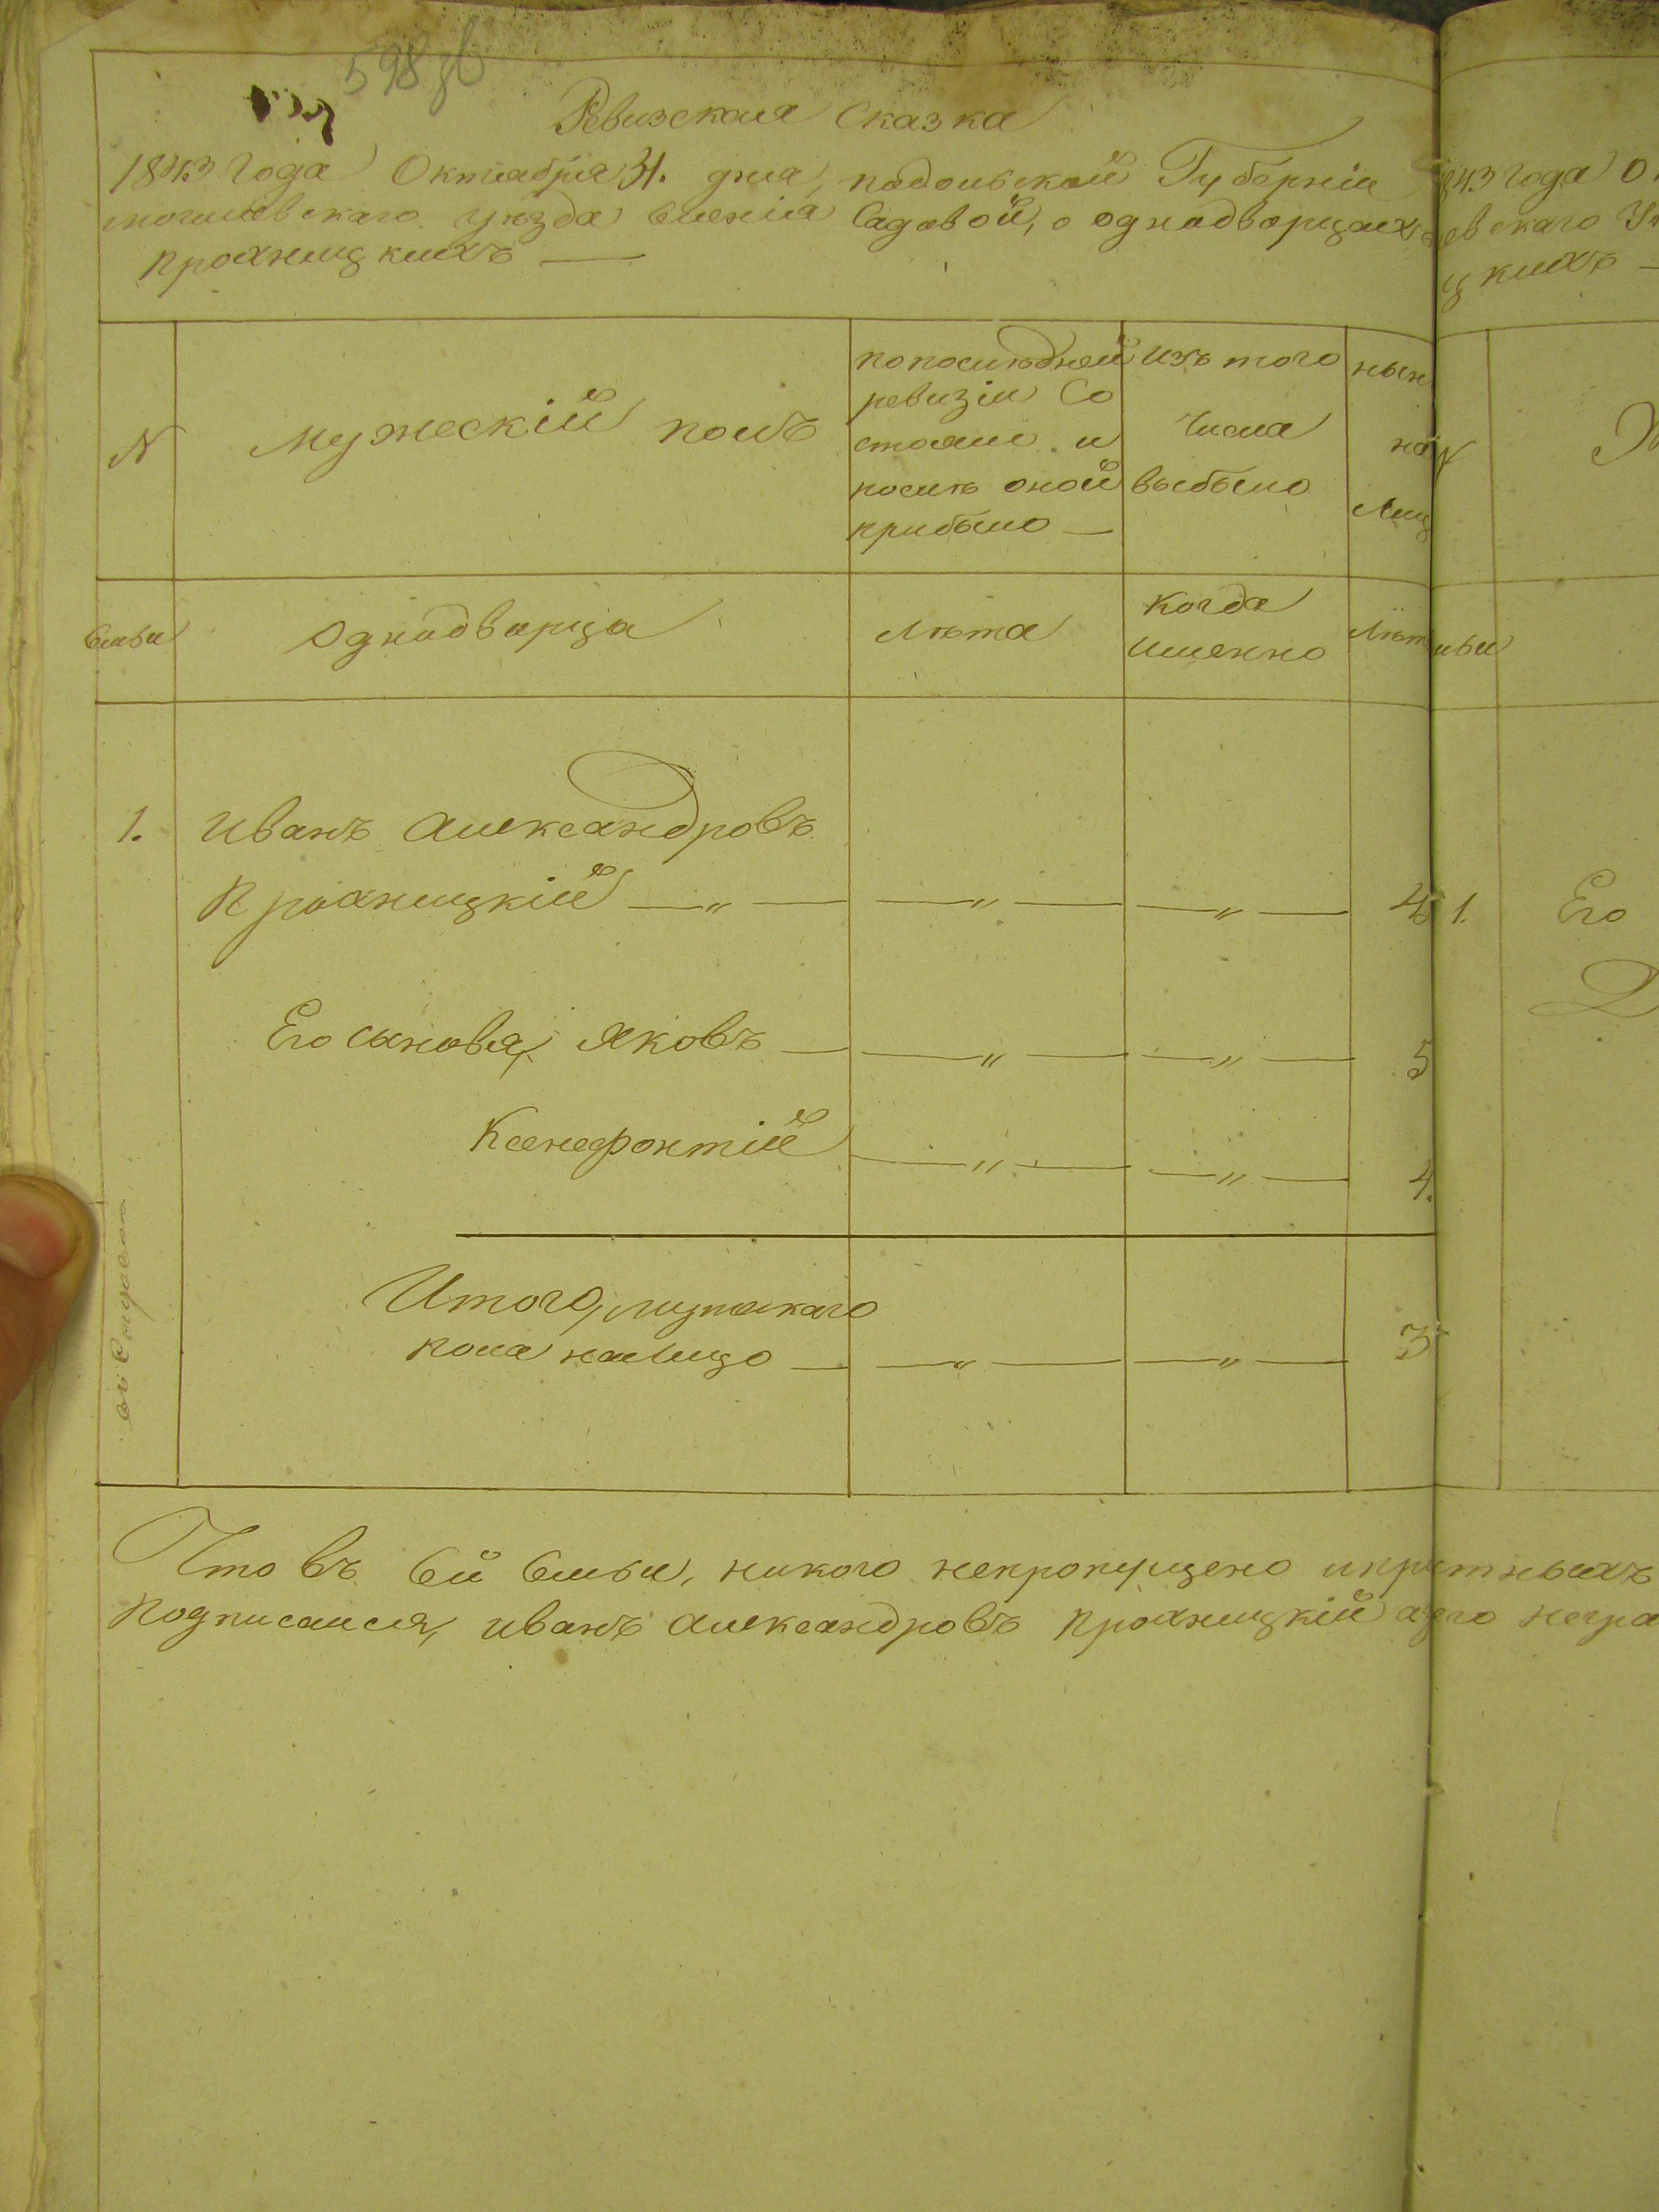 598 об
Ревизская Сказка
1843 года Октября 31. дня, подольской Губерніи
могилевскаго уезда имѣнія Садовой, о однодворцахъ
прохницкихъ —
N
мужескій полъ
по последней
ревизіи Со
стояло и
после оной
прибыло —
изъ того
Числа
выбыло
нын
на
Лиц
Семьи
Однодворца
Лета
Когда
именно
Лет
1. иванъ александровъ
Прохницкій — „ — — „ — — „ — 45
Его сыновя, яковъ — — „ — — „ — 5
Ксенефонтій — „ — — „ — 4.
Итого, мужскаго
пола налицо — — „ — — „ — 3
Что въ сей семьи, никого непропущено
подписался, иванъ александровъ прохницкій
843 года О
евскаго У
цкихъ —
N
мьи
1. Его